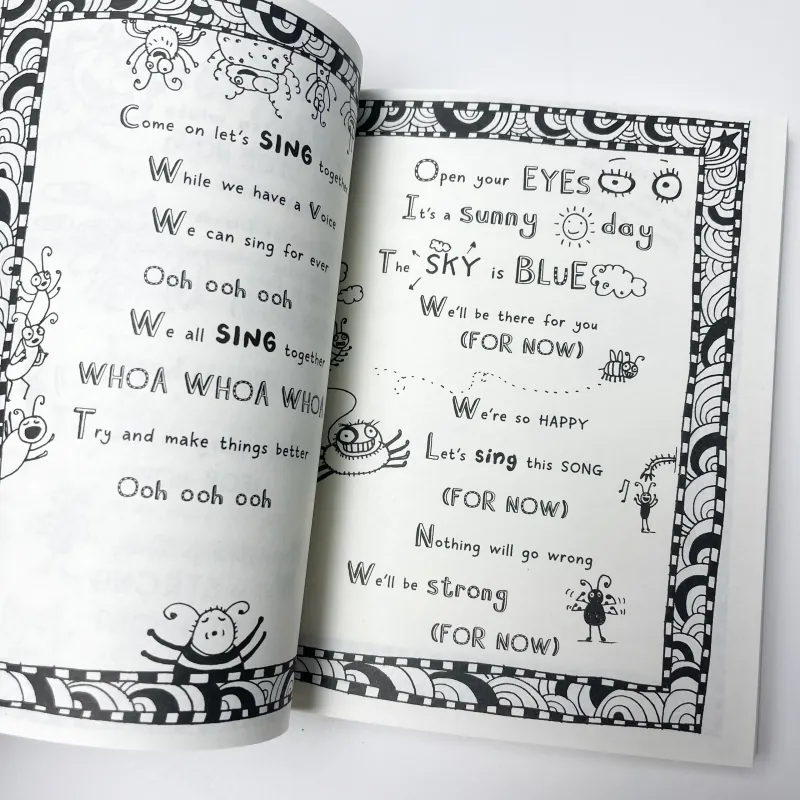 Come on let's SING together
While we have a Voice
We can sing for ever
Ooh ooh ooh
We all SING together
WHOA WHOA WHOA
Try and make things better
Ooh ooh ooh
Open your EYES
It's a sunny day
The SKY is BLUE
We'll be there for you
(FOR NOW)
We're so HAPPY
Let's sing this SONG
(FOR NOW)
Nothing will go wrong
We'll be strong
(FOR NOW)